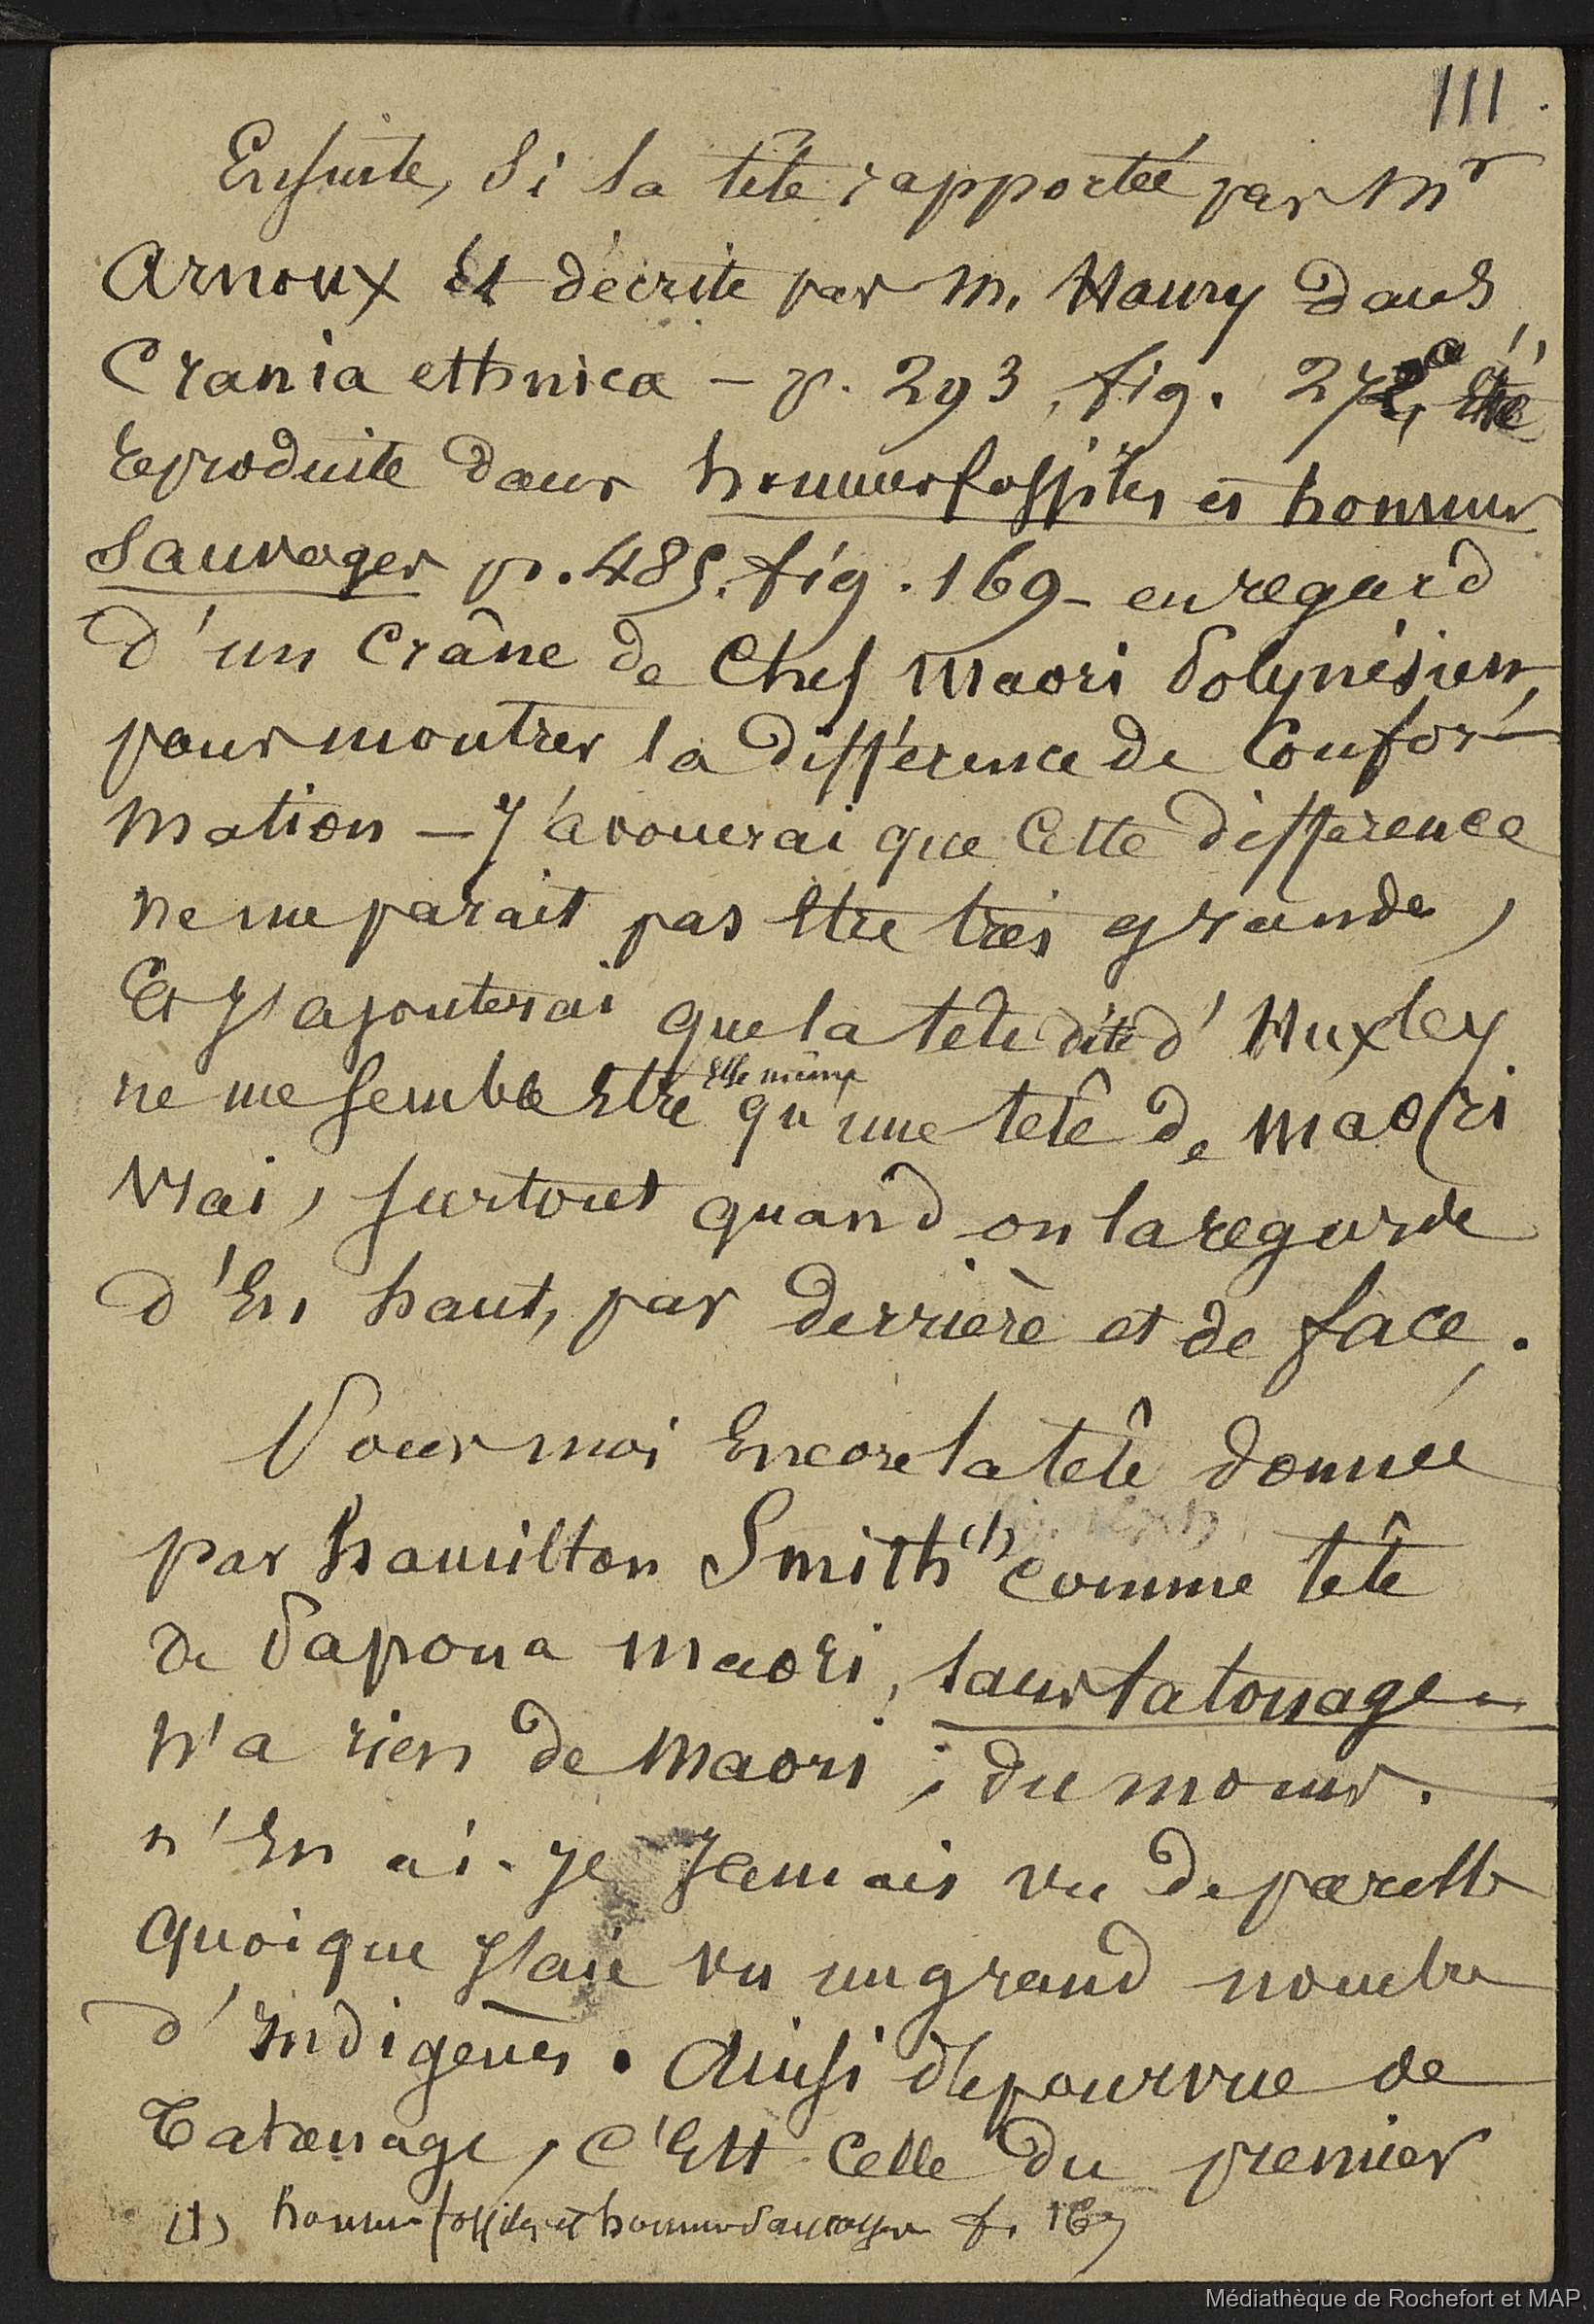 111.
Ensuite, si la tête rapportée par Mr
Arnoux et décrite par M. Hamy dans
Crania ethnica - p. 293, fig. 272, a été
reproduite dans hommes fossiles et hommes
Sauvages p. 485. fig. 169 - en regard
d'un Crâne de Chef Maori Polynésien,
pour montrer la différence de Confor-
mation - J'avouerai que Cette différence
ne me parait pas Etre très grande,
Et J'ajouterai que la tête dite d'Huxley
ne me semble Etre elle même qu'une tête de maori
vrai, surtout quand on la regarde
d'En haut, par derrière et de face.
Pour moi Encore la tête donnée
par hamilton Smith (1) comme tête
de Papoua maori, sans tatouage
n'a rien de maori ; du moins.
n'En ai-je Jamais vu de pareille
quoique J'aie vu un grand nombre
d'Indigènes. Ainsi dépourvue de
Tatouage, c'Est Celle du premier
(1) hommes fossiles et hommes Sauvages f. 167
Médiathèque de Rochefort et MAP